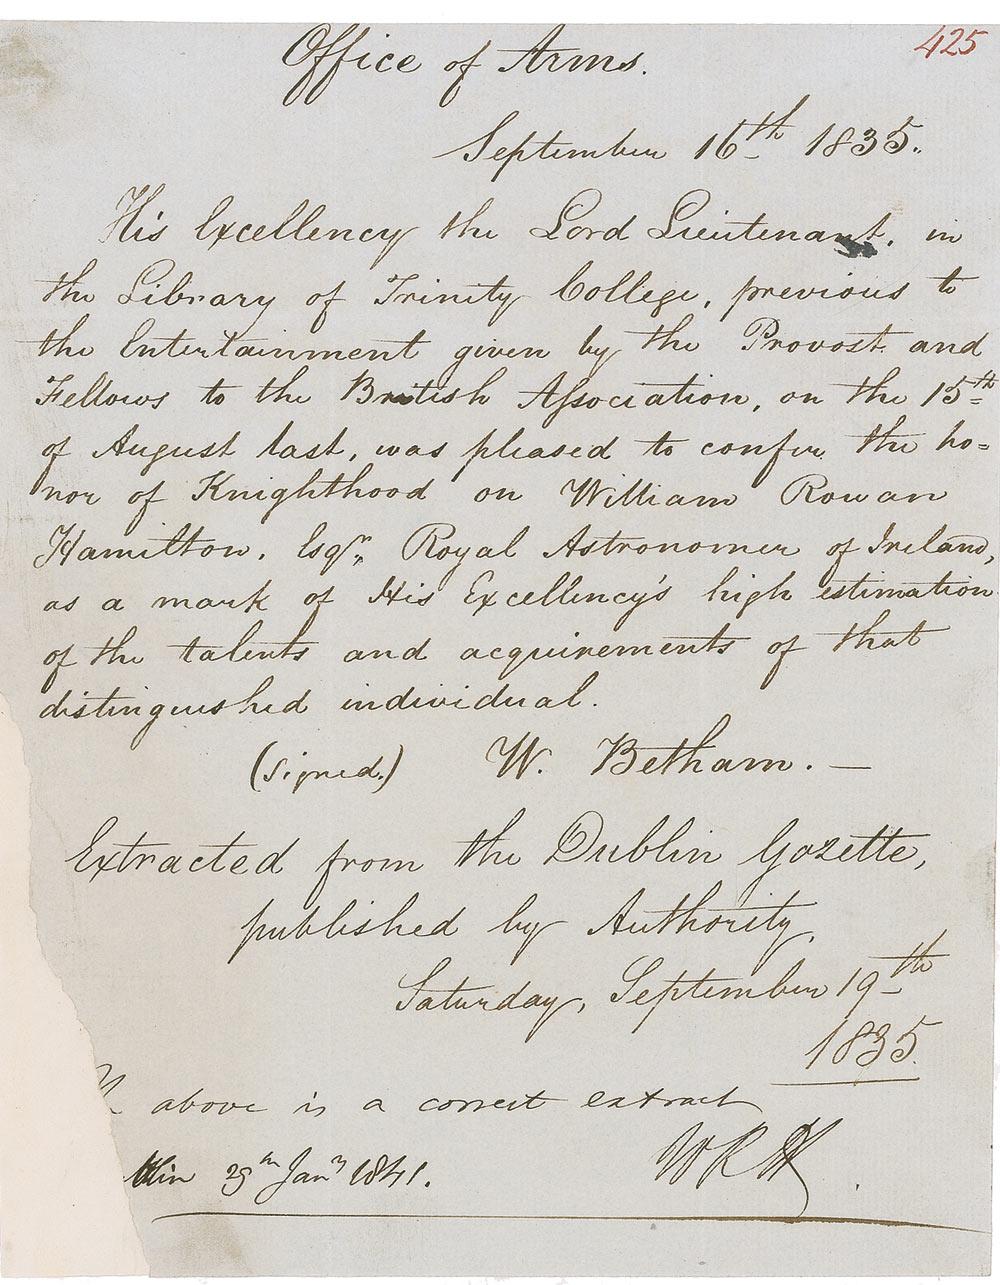 425
Office of Arms.
September 16th 1835.
His Excellency the Lord Lieutenant, in
the Library of Trinity College, previous to
the Entertainment given by the Provost and
Fellows to the British Association, on the 15th
of August last, was pleased to confer the ho=
nor of Knighthood on William Rowan
Hamilton, Esqr., Royal Astronomer of Ireland,
as a mark of His Excellency's high estimation
of the talents and acquirements of that
distinguished individual.
(signed.) W. Betham. —
Extracted from the Dublin Gazette,
published by Authority,
Saturday, September 19th
1835.
above is a correct extract
blin 29th Jany 1841. WRH